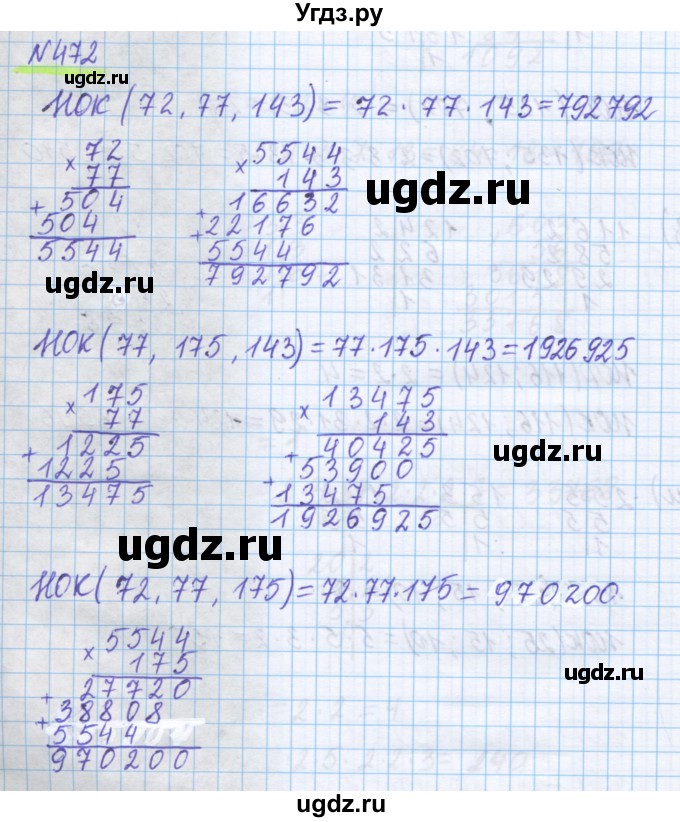 Угдз.ру
N 472
ugdz.ru
НОК (72, 77, 143) = 72 · 77 · 143 = 792792
× 72
77
+ 504
504
5544
× 5544
143
+ 16632
+ 22176
5544
792792
ugdz.ru
ugdz.ru
ugdz.ru
НОК (77, 175, 143) = 77 · 175 · 143 = 1926925
× 175
77
+ 1225
1225
13475
× 13475
143
+ 40425
+ 53900
13475
1926925
ugdz.ru
ugdz.ru
ugdz.ru
НОК (72, 77, 175) = 72 · 77 · 175 = 970200.
× 5544
175
+ 27720
+ 38808
5544
970200
ugdz.ru
ugdz.ru
ugdz.ru